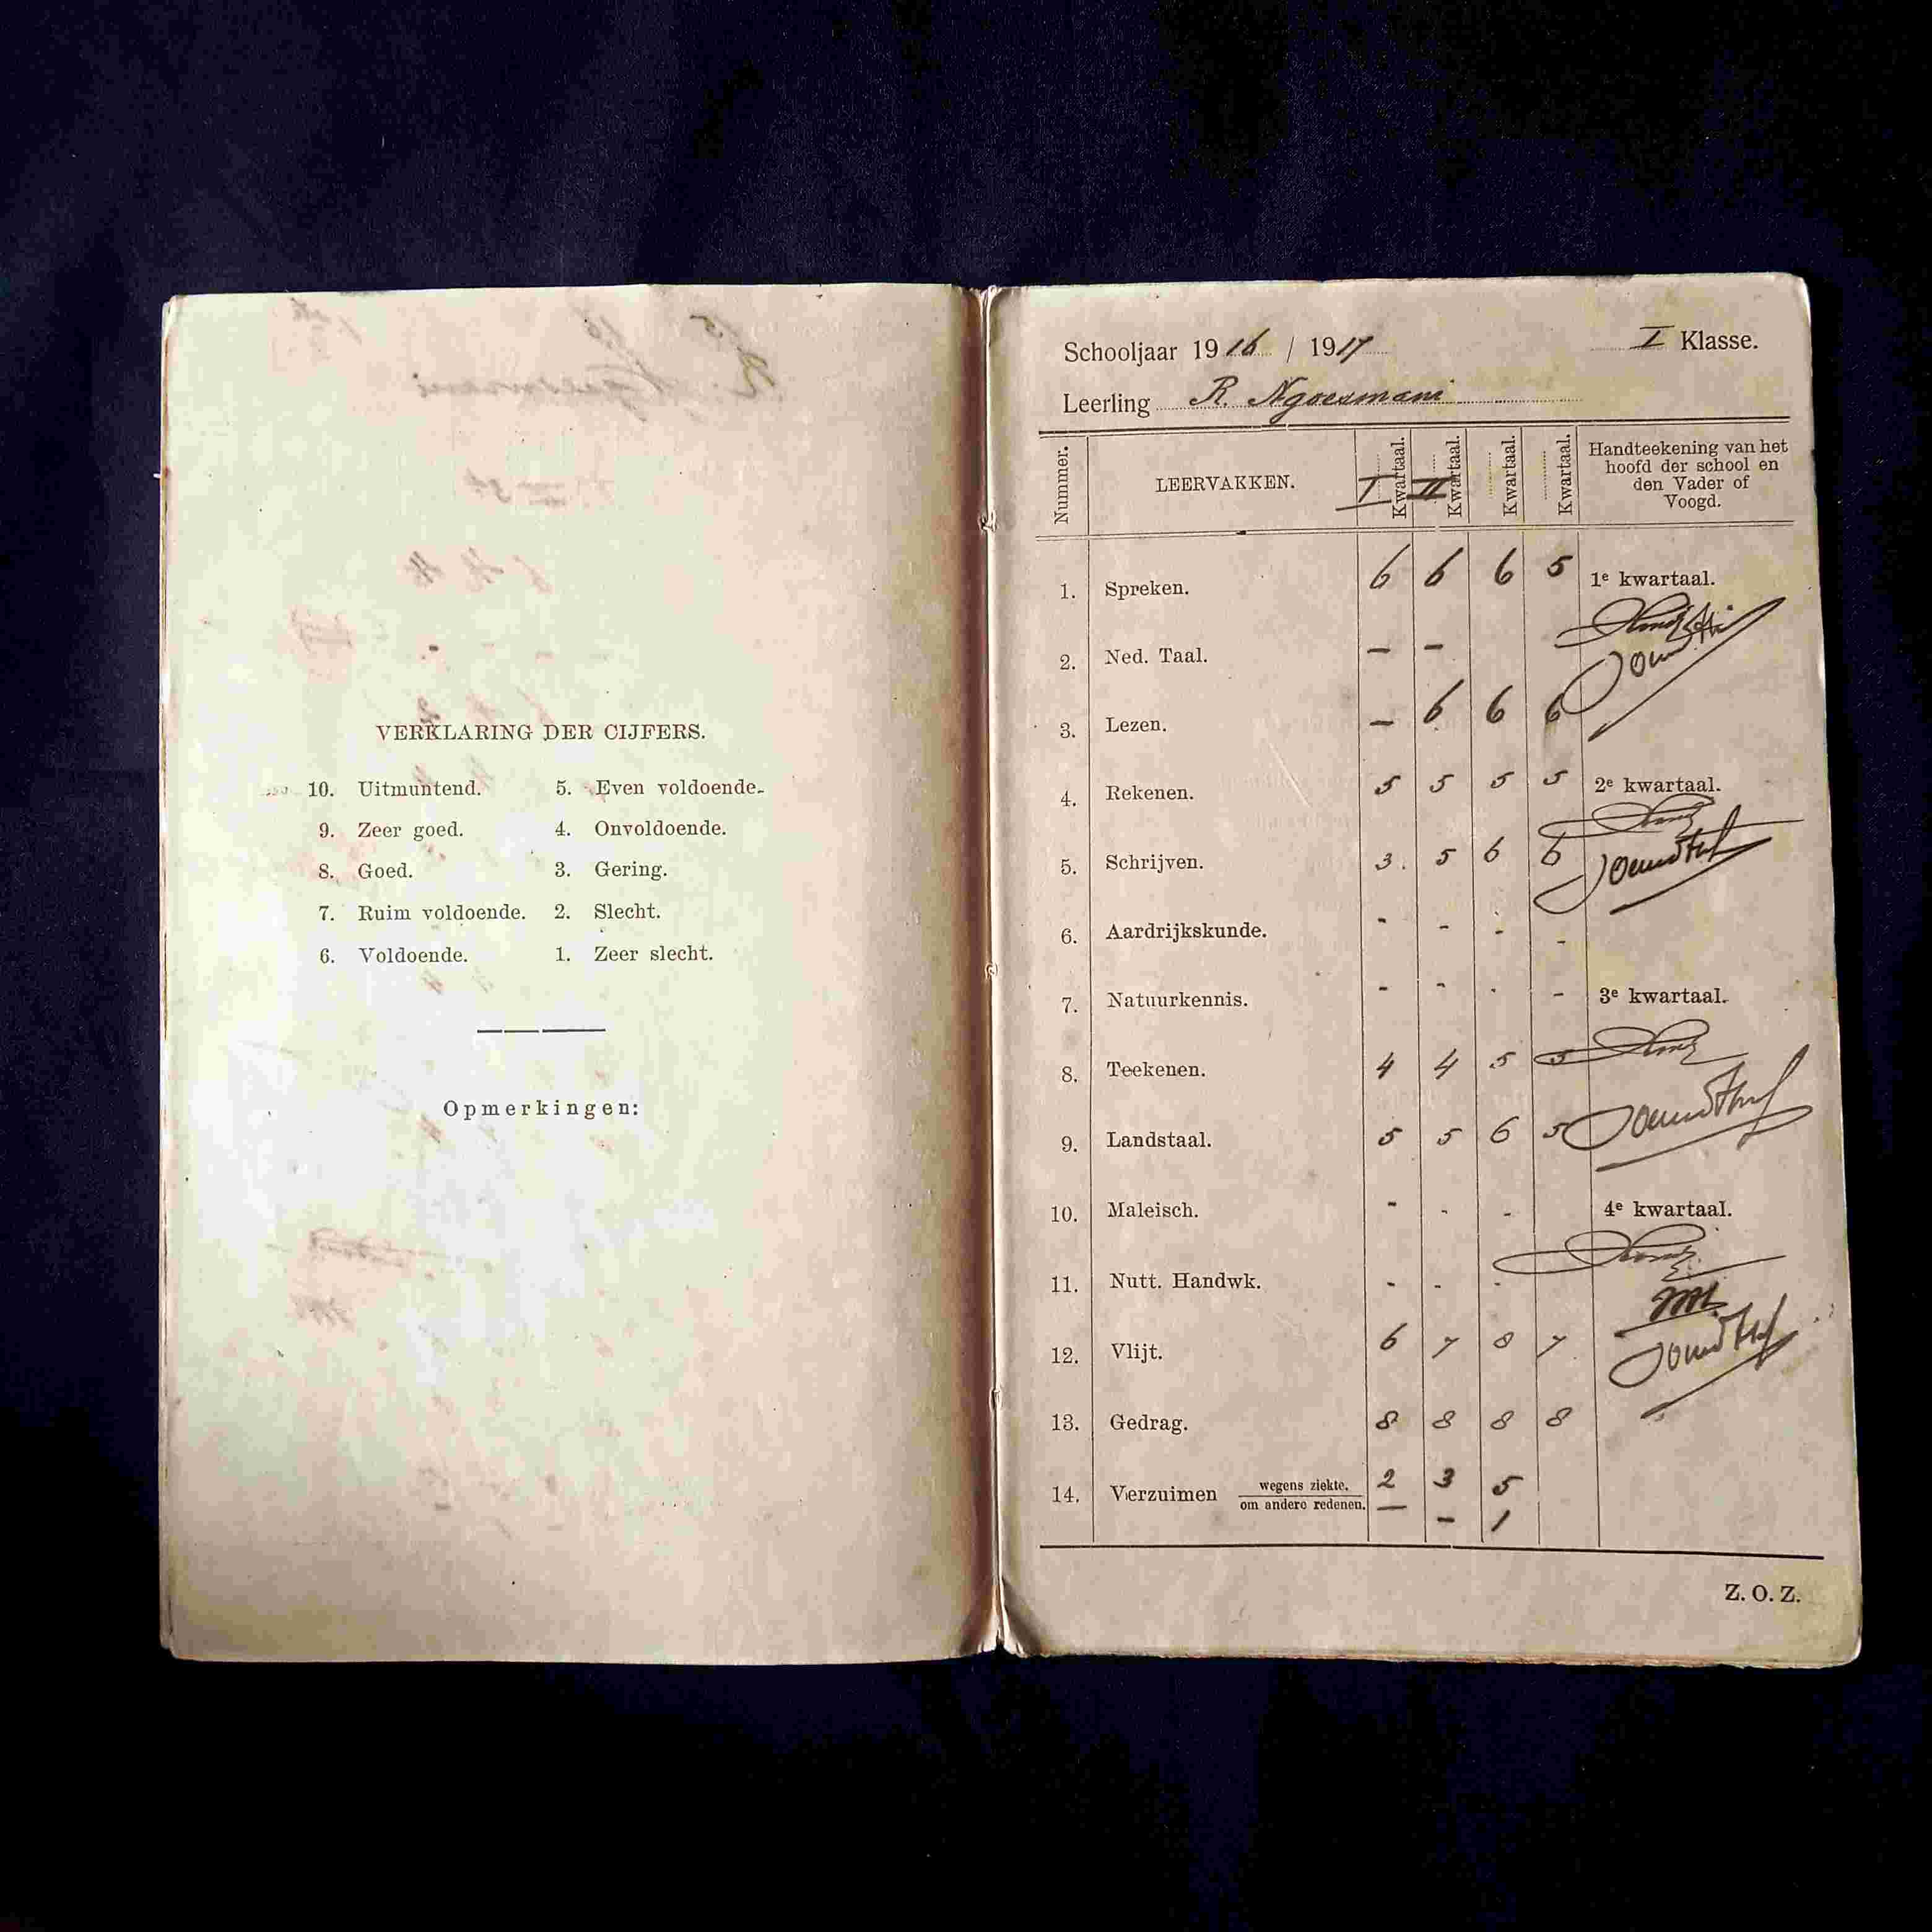 VERKLARING DER CIJFERS.
10. Uitmuntend. 5. Even voldoende.
9. Zeer goed. 4. Onvoldoende.
8. Goed. 3. Gering.
7. Ruim voldoende. 2. Slecht.
6. Voldoende. 1. Zeer slecht.
Opmerkingen:
Schooljaar 1916 / 1917 I Klasse.
Leerling R. Ngoesmani
Nummer. LEERVAKKEN. I Kwartaal. II Kwartaal. Kwartaal. Kwartaal. Handteekening van het
hoofd der school en
den Vader of
Voogd.
1. Spreken. 6 6 6 5 1e kwartaal.
2. Ned. Taal. — —
3. Lezen. — 6 6 6
4. Rekenen. 5 5 5 5 2e kwartaal.
5. Schrijven. 3. 5 6 6
6. Aardrijkskunde. - - - -
7. Natuurkennis. - - - - 3e kwartaal.
8. Teekenen. 4 4 5 5
9. Landstaal. 5 5 6 5
10. Maleisch. - - - 4e kwartaal.
11. Nutt. Handwk. - - -
12. Vlijt. 6 7 8 7
13. Gedrag. 8 8 8 8
14. Verzuimen wegens ziekte. 2 3 5
om andere redenen. — - 1
Z. O. Z.